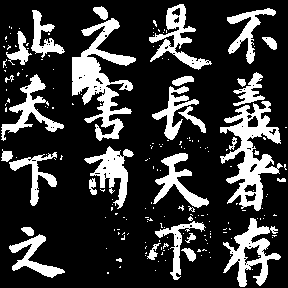 不義者存
是長天下
之害而
止天下之